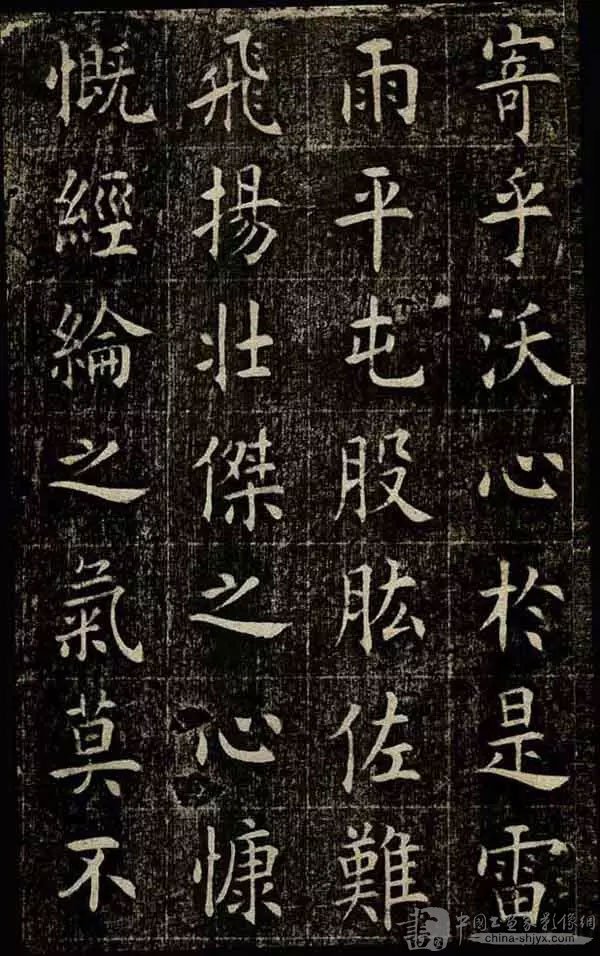 寄乎沃心於是雷
雨平屯股肱佐難
飛揚壯傑之心慷
慨經綸之氣莫不
中国书画家影像網
china-shjyx.com